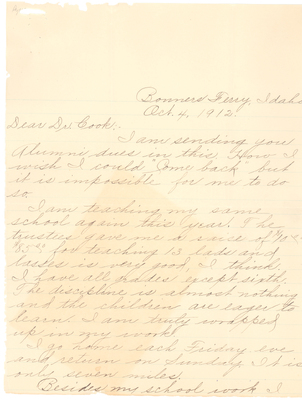 Bonners Ferry, Idaho
Oct. 4, 1912.
Dear Dr. Cook:-
I am sending you
Alumni dues in this. How I
wish I could "come back" but
it is impossible for me to do
so.
I am teaching my same
school again this year. The
trustees gave me a raise of
for teaching 13 lads and
lasses is very good, I think.
I have all grades except sixth.
The discipline is almost nothing
and the children are eager to
learn. I am truly wrapped
up in my work.
I go home each Friday eve
and return on Sunday. It is
only seven miles.
Besides my school work I